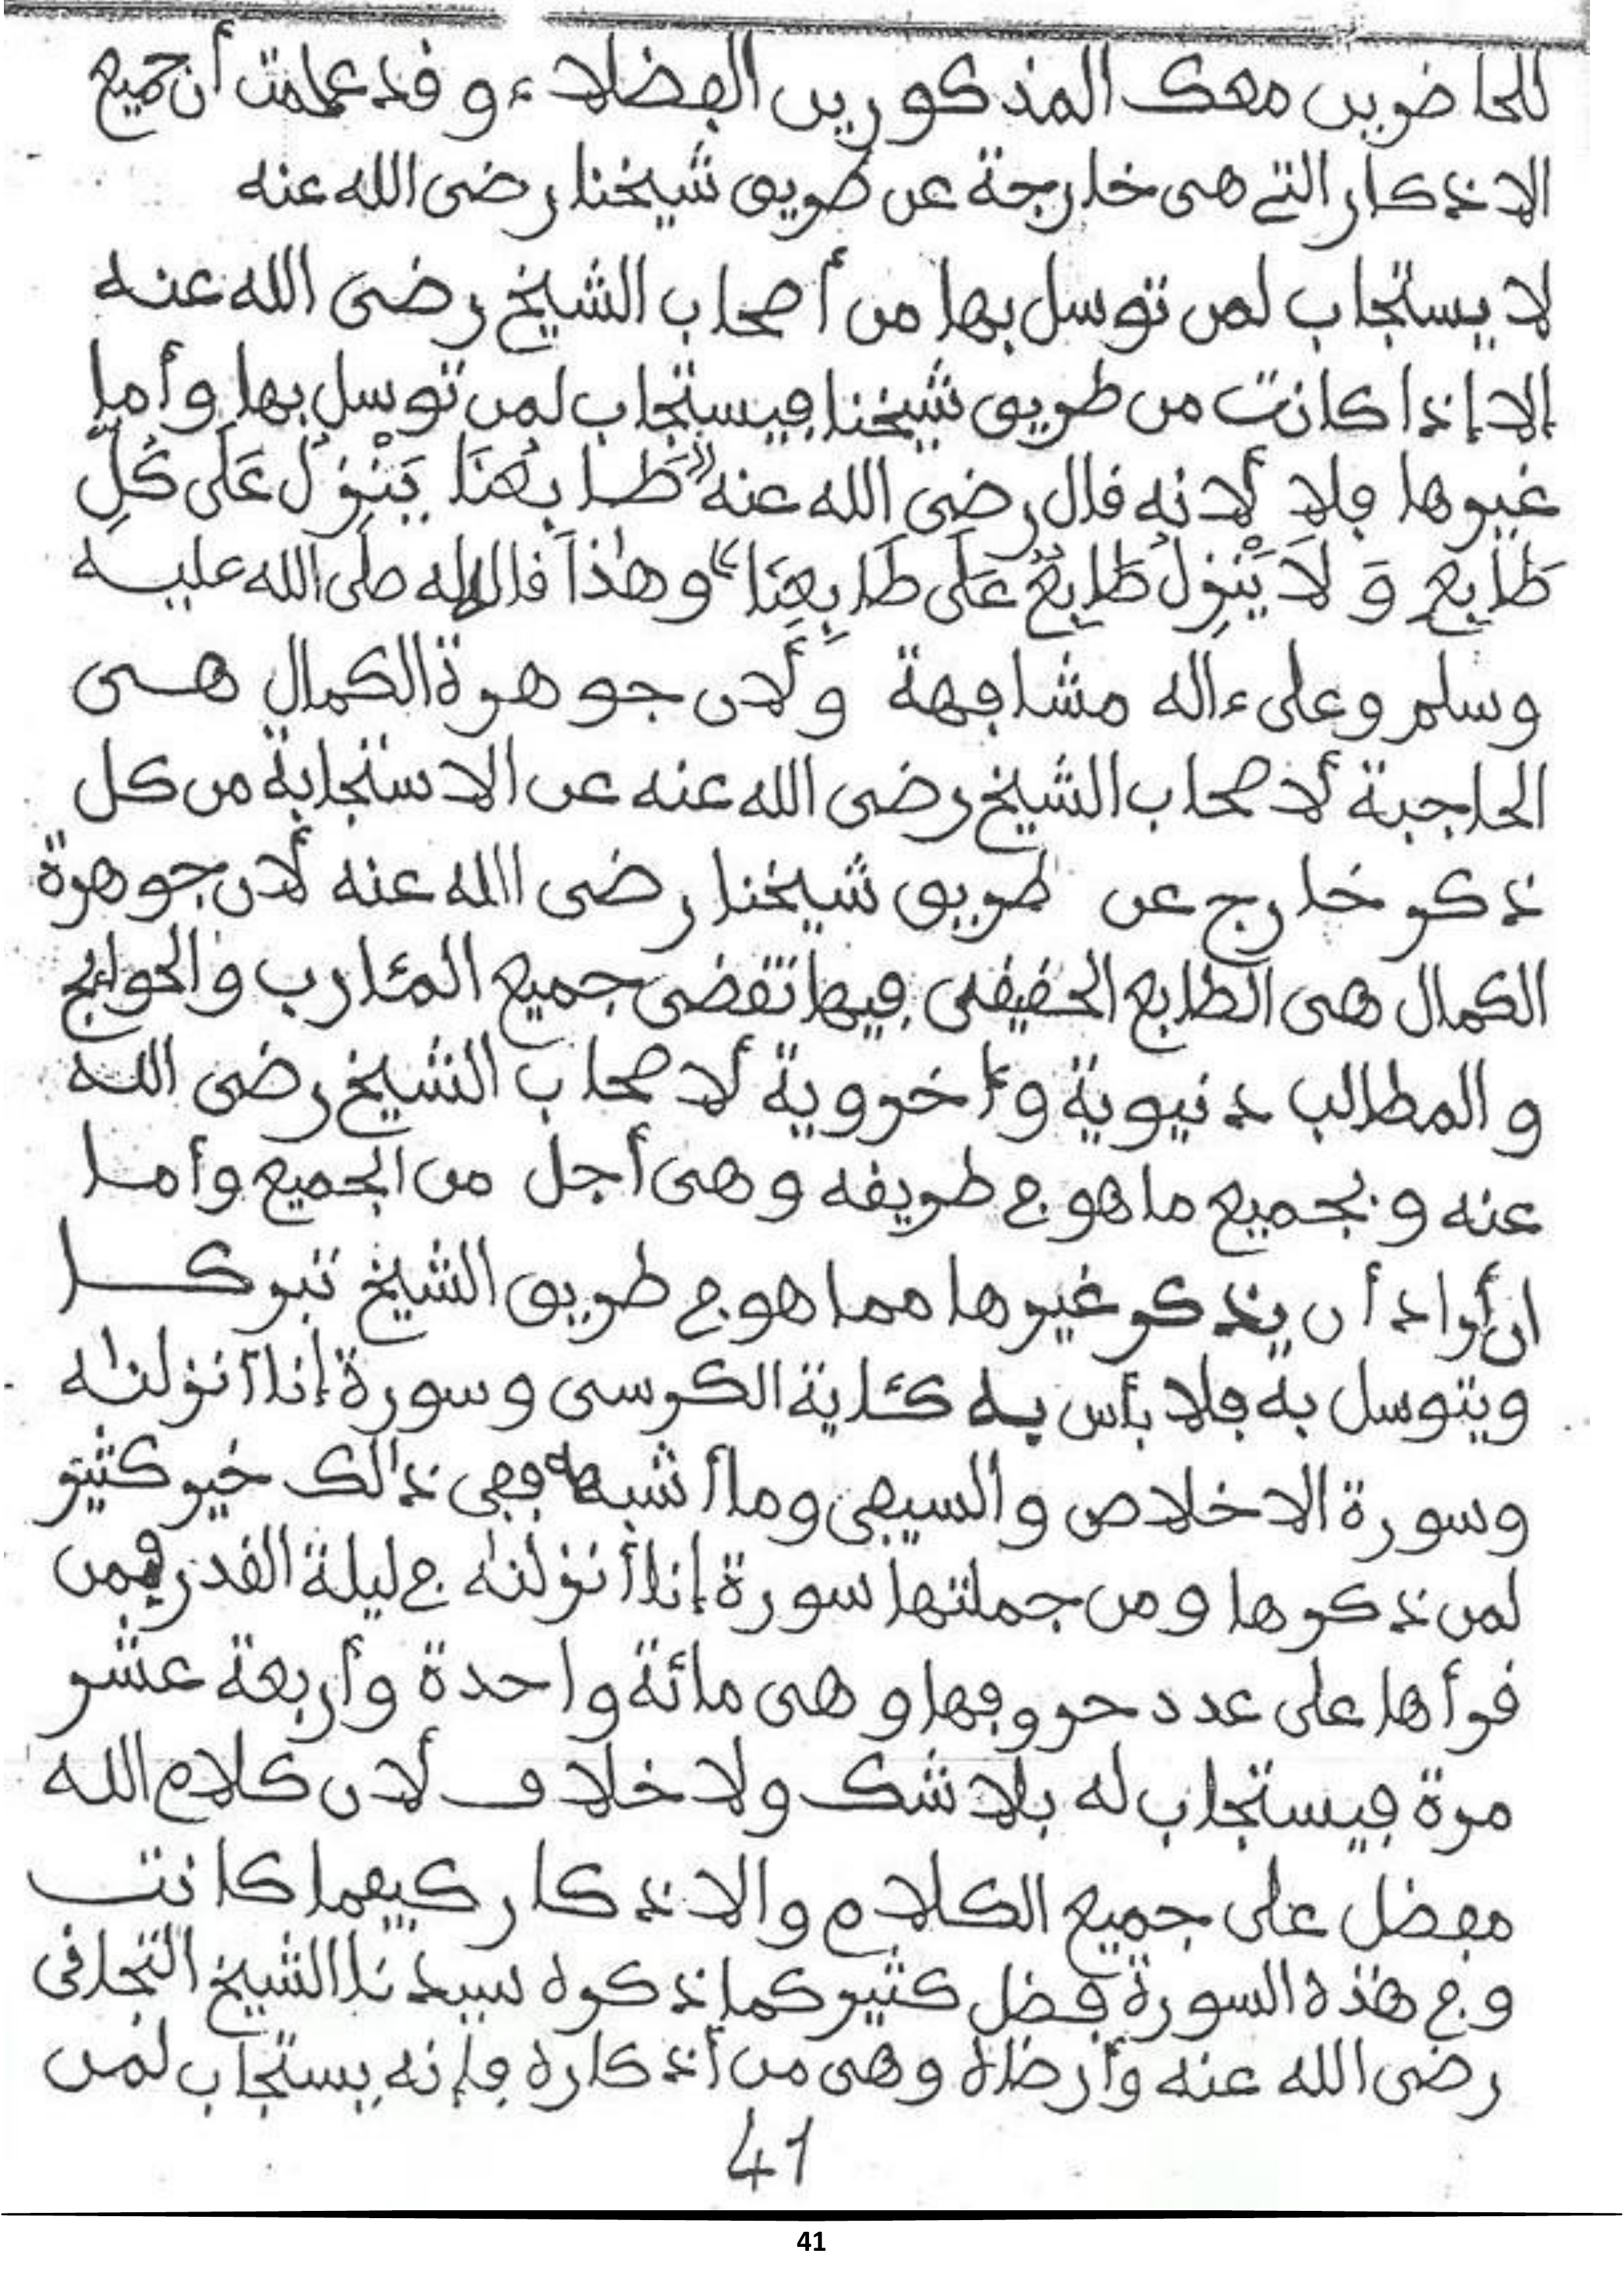 للحاضرين معك المذكورين الفضلاء وقد علمت أن جميع
الاذكار التي هى خارجة عن طريق شيخنا رضى الله عنه
لا يستجاب لمن توسل بها من أصحاب الشيخ رضى الله عنه
إلا إذا كانت من طريق شيخنا فيستجاب لمن توسل بها وأما
غيرها فلا لأنه قال رضى الله عنه "طَابِعُنَا يَنْزِلُ عَلَى كُلِّ
طَابِعٍ وَ لاَ يَنْزِلُ طَابِعٌ عَلَى طَابِعِنَا" وهٰذا قاله له صلى الله عليه
وسلم وعلى ءاله مشافهة ولأن جوهرة الكمال هى
الحاجبة لأصحاب الشيخ رضى الله عنه عن الاستجابة من كل
ذكر خارج عن طريق شيخنا رضى الله عنه لأن جوهرة
الكمال هى الطابع الحقيقى فبها تقضى جميع المئارب والحوائج
والمطالب دنيوية وأخروية لأصحاب الشيخ رضى الله
عنه وبجميع ما هو في طريقه وهى أجل من الجميع وأما
ان أراد أن يذكر غيرها مما هو في طريق الشيخ تبركا
ويتوسل به فلا بأس به كئاية الكرسى وسورة إنا أنزلنٰه
وسورة الاخلاص والسيفى وما أشبهه ففى ذالك خير كثير
لمن ذكرها ومن جملتها سورة إنا أنزلنٰه في ليلة القدر فمن
قرأها على عدد حروفها وهى مائة واحدة وأربعة عشر
مرة فيستجاب له بلا شك ولا خلاف لأن كلام الله
مفضل على جميع الكلام والاذكار كيفما كانت
وفي هٰذه السورة فضل كثير كما ذكره سيدنا الشيخ التجانى
رضى الله عنه وأرضاه وهى من أذكاره فإنه يستجاب لمن
41
41